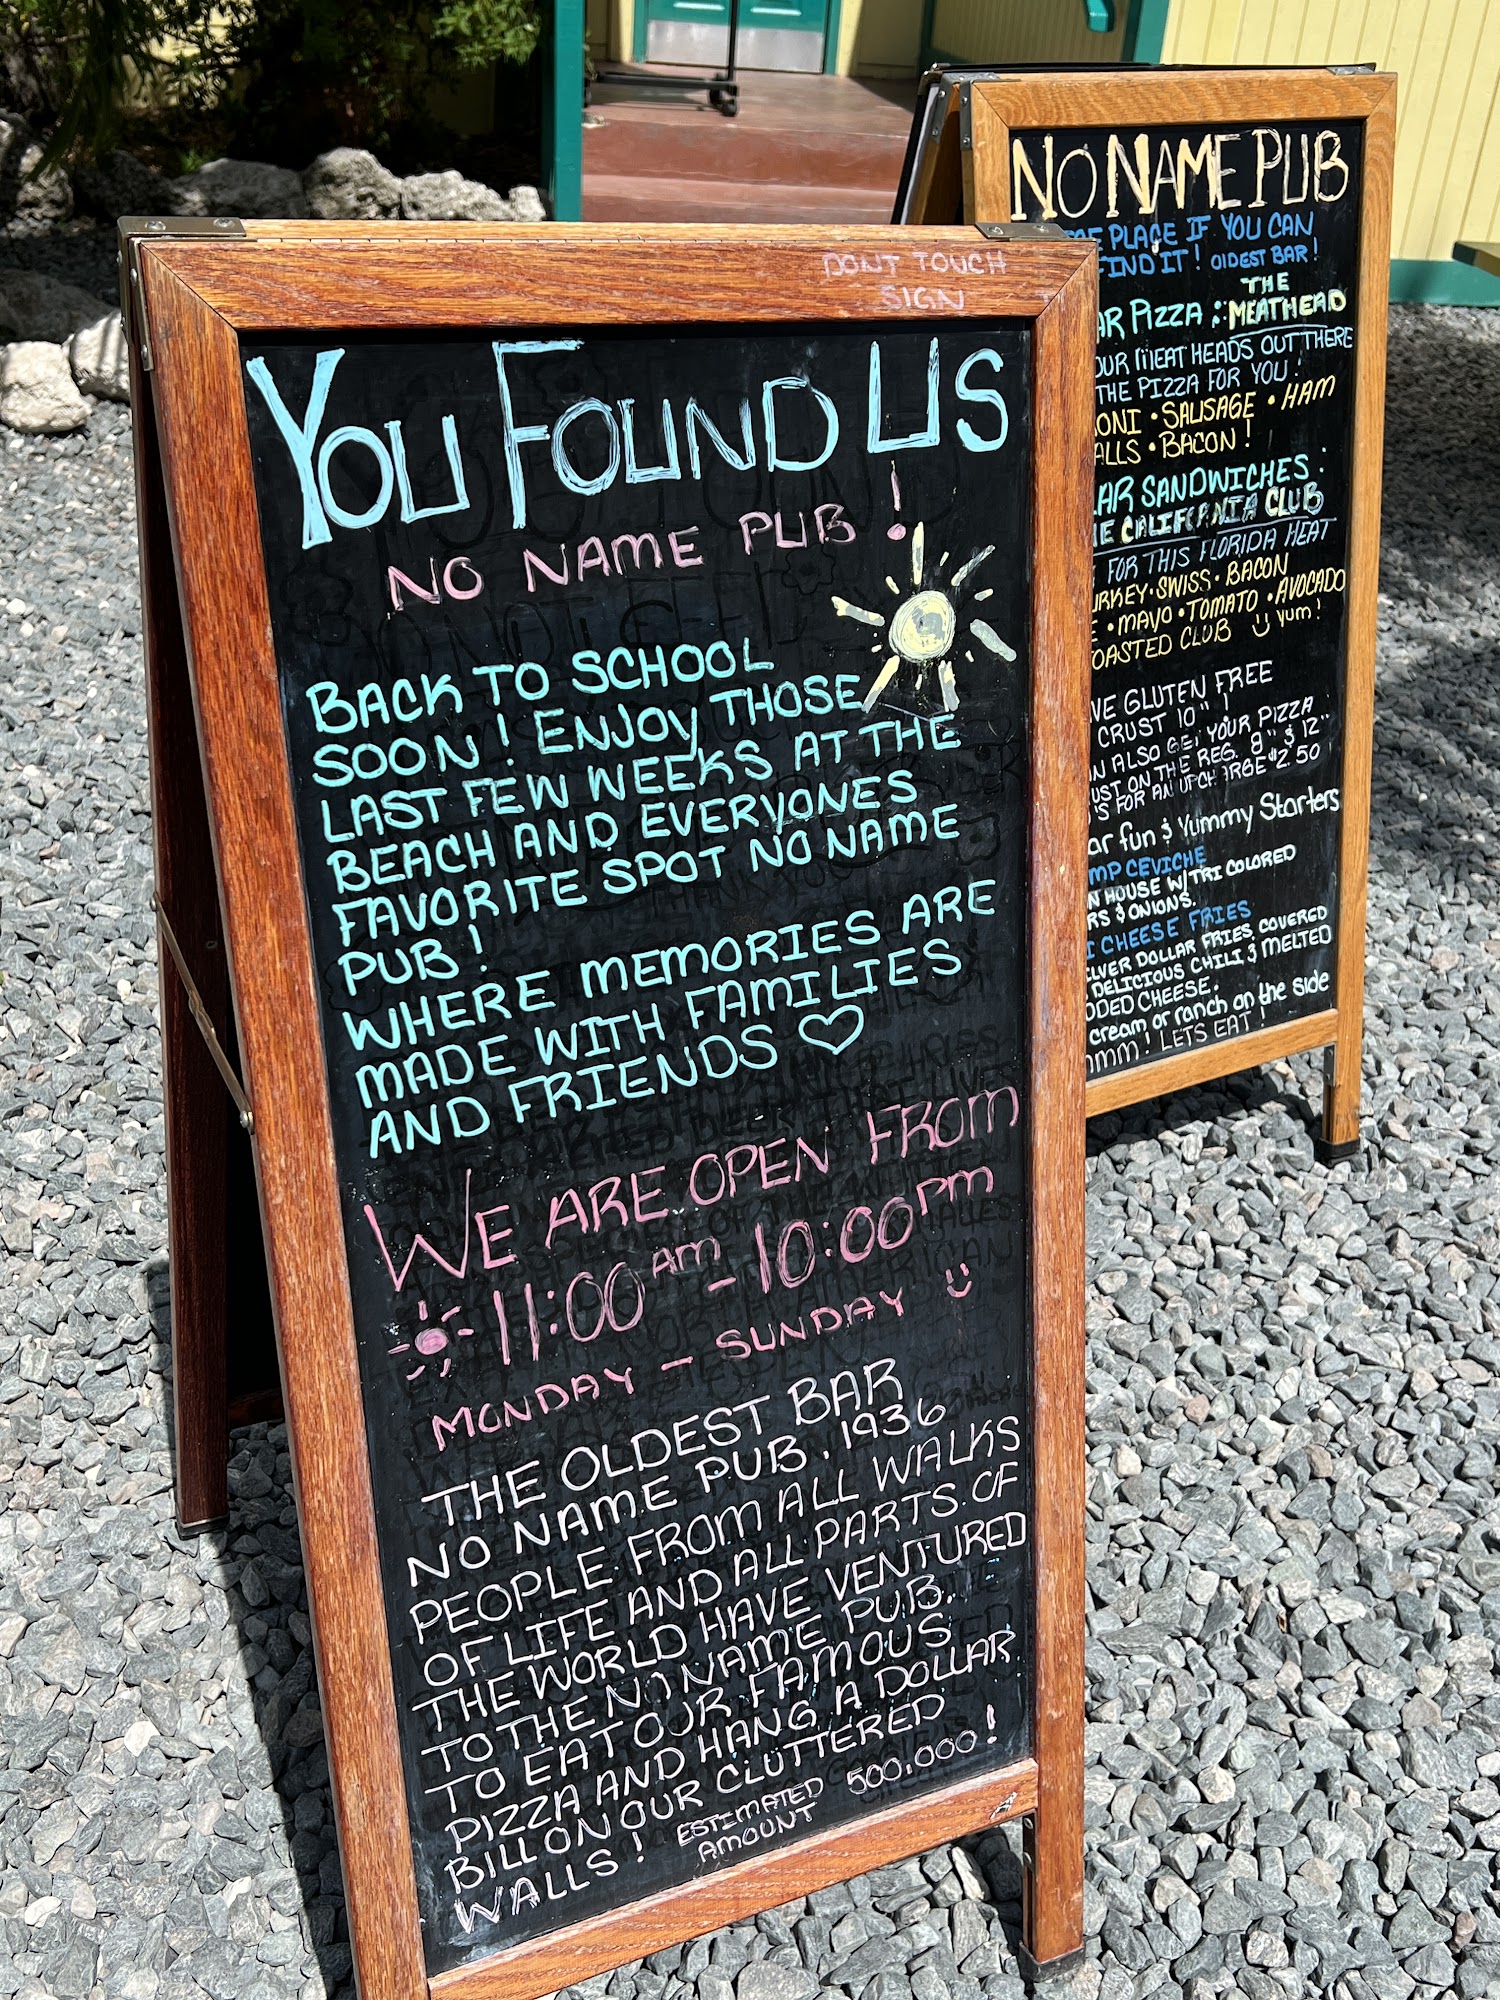 DONT TOUCH
SIGN
YOU FOUND US
NO NAME PUB!
BACK TO SCHOOL
SOON! ENJOY THOSE
LAST FEW WEEKS AT THE
BEACH AND EVERYONES
FAVORITE SPOT NO NAME
PUB!
WHERE MEMORIES ARE
MADE WITH FAMILIES
AND FRIENDS ♡
WE ARE OPEN FROM
11:00 AM - 10:00 PM
MONDAY - SUNDAY
THE OLDEST BAR
NO NAME PUB, 1936
PEOPLE FROM ALL WALKS
OF LIFE AND ALL PARTS OF
THE WORLD HAVE VENTURED
TO THE NO NAME PUB.
TO EAT OUR FAMOUS
PIZZA AND HANG A DOLLAR
BILL ON OUR CLUTTERED
WALLS! ESTIMATED 500,000!
AMOUNT
NO NAME PUB
PLACE IF YOU CAN
FIND IT! OLDEST BAR!
PIZZA: THE
MEATHEAD
OUR MEAT HEADS OUT THERE
THE PIZZA FOR YOU!
SAUSAGE • HAM
• BACON!
SANDWICHES:
CALIFORNIA CLUB
FOR THIS FLORIDA HEAT
• SWISS • BACON
• MAYO • TOMATO • AVOCADO
CLUB Yum!
GLUTEN FREE
CRUST 10"!
ALSO GET YOUR PIZZA
ON THE REG. 8" & 12"
FOR AN UPCHARGE $2.50
fun & Yummy Starters
CEVICHE
HOUSE W/ TRI COLORED
& ONIONS.
CHEESE FRIES
DOLLAR FRIES COVERED
DELICIOUS CHILI & MELTED
CHEESE.
cream or ranch on the side
LETS EAT!